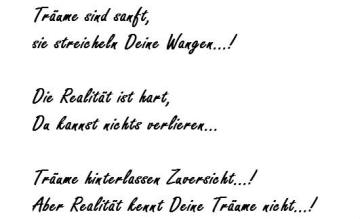 Träume sind sanft,
sie streicheln Deine Wangen...!
Die Realität ist hart,
Du kannst nichts verlieren...
Träume hinterlassen Zuversicht...!
Aber Realität kennt Deine Träume nicht...!